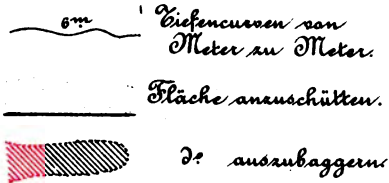 6m
Tiefencurven von
Meter zu Meter.
Fläche anzuschütten.
do auszubaggern.